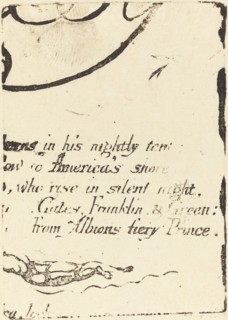 in his nightly tent
to America's shore
, who rise in silent night.
Gates, Franklin & Green:
from Albions fiery Prince.